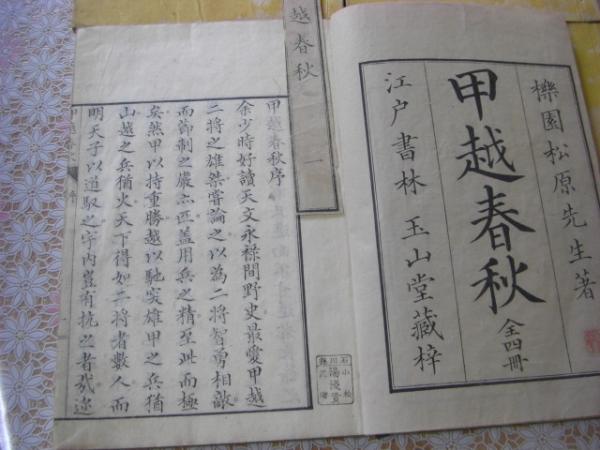 櫟園松原先生著
甲越春秋
全四冊
江戸書林 玉山堂藏梓
越春秋 一
甲越春秋序
余少時好讀天文永祿間野史最愛甲越
二將之雄桀嘗論之以為二將智勇相敵
而節制之嚴亦匹蓋用兵之精至此而極
矣然甲以持重勝越以馳突雄甲之兵猶
山越之兵猶火天下得如二將者數人而
明天子以道馭之宇內豈有抗之者哉迩